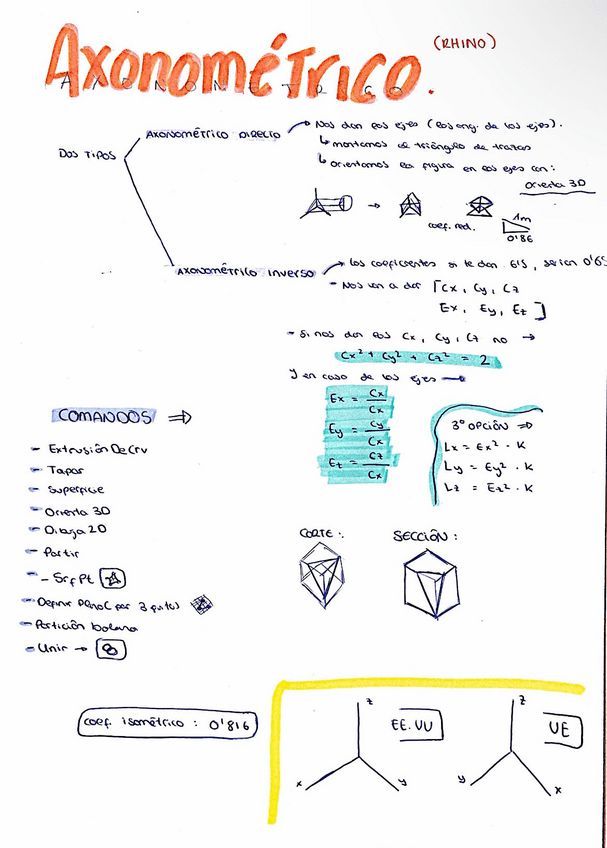 Axonométrico.
(RHINO)
AXONOMETRICO
DOS TIPOS
AXONOMÉTRICO DIRECTO
Nos dan los ejes (los ang. de los ejes).
montamos el triángulo de trazas
orientamos la figura en los ejes con:
Orienta 3D
coef. red.
1m
0'86
AXONOMÉTRICO inverso
los coeficientes si te dan 6'5, serian 0'65
- Nos van a dar [Cx, Cy, Cz
Ex, Ey, Ez]
- Si nos dan los Cx, Cy, Cz no →
Cx² + Cy² + Cz² = 2
Y en caso de los ejes →
Ex = Cx/Cx
Ey = Cy/Cx
Ez = Cz/Cx
3º OPCIÓN ⇒
Lx = Ex² · K
Ly = Ey² · K
Lz = Ez² · K
COMANDOS ⇒
- Extrusión De Crv
- Tapar
- Superficie
- Orienta 3D
- Dibuja 2D
- Partir
- SrfPt
- Definir Plano (por 3 puntos)
- Partición booleana
- Unir →
CORTE:.
SECCIÓN:
coef. isométrico: 0'816
z
x
y
EE.UU
z
y
x
UE